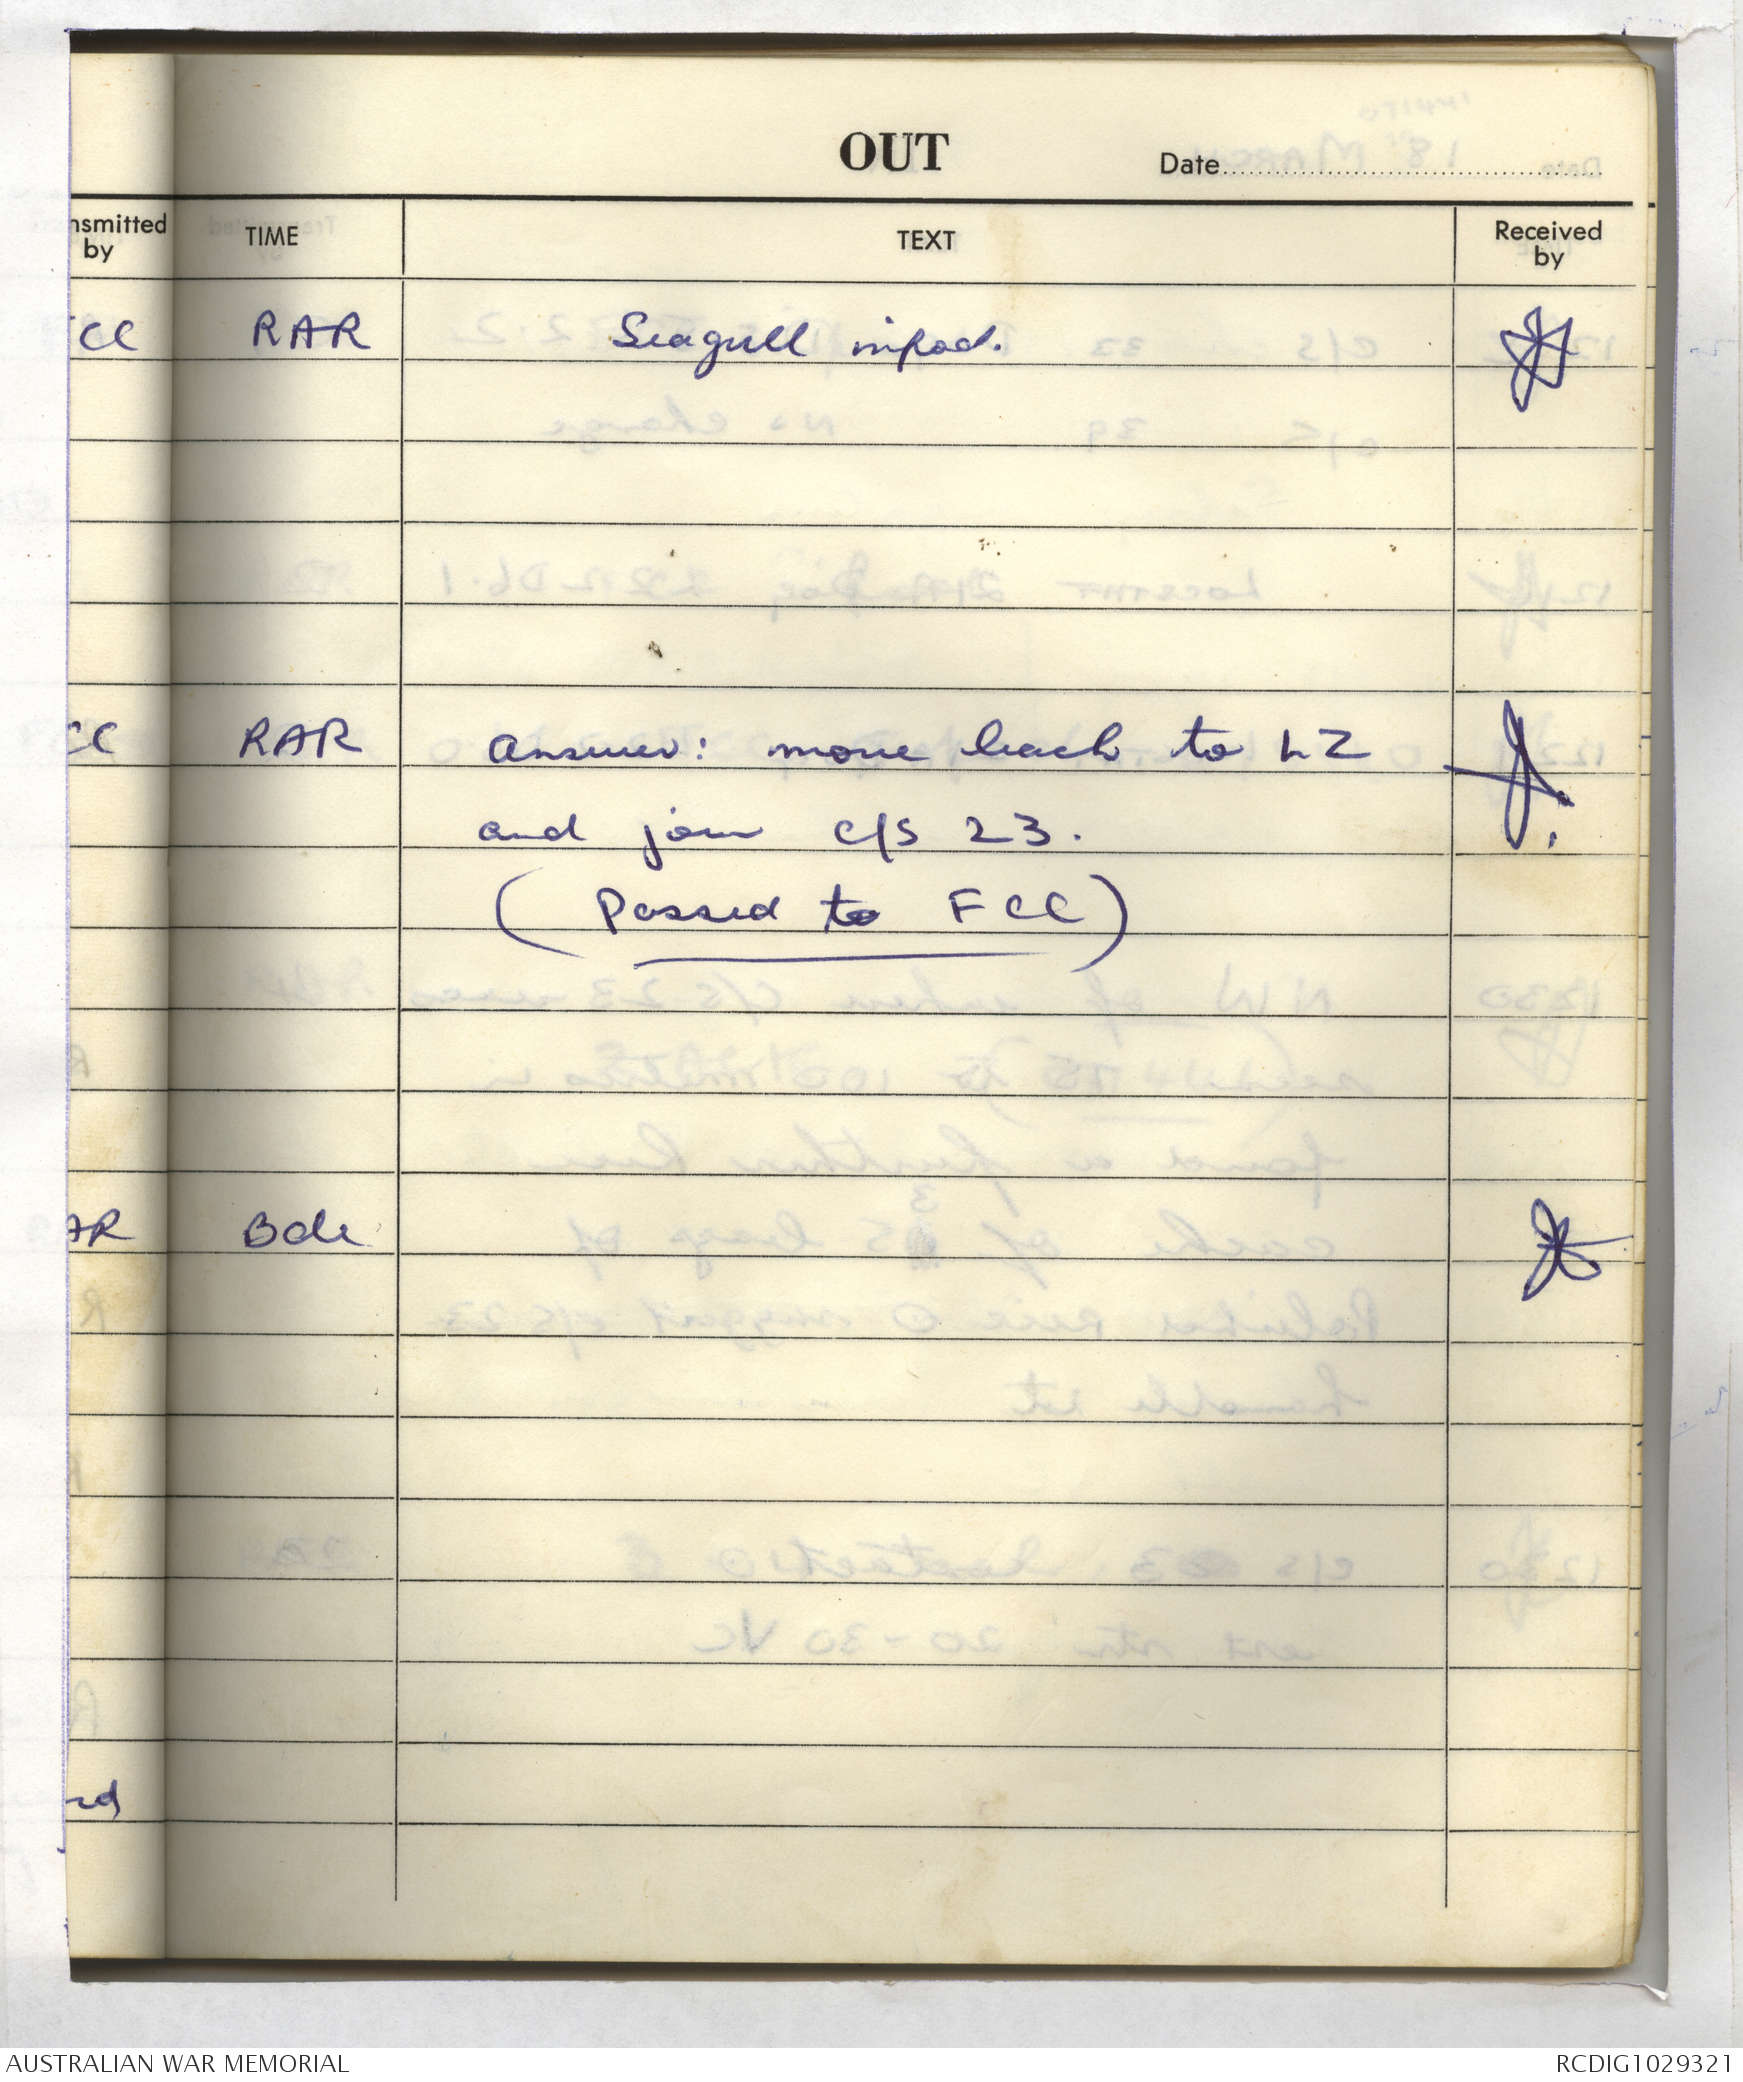 OUT
Date
nsmitted by TIME TEXT Received by
CC RAR Seagull infod.
CC RAR Answer: move back to LZ
and join c/s 23.
(Passed to FCC)
AR Bde
AUSTRALIAN WAR MEMORIAL RCDIG1029321